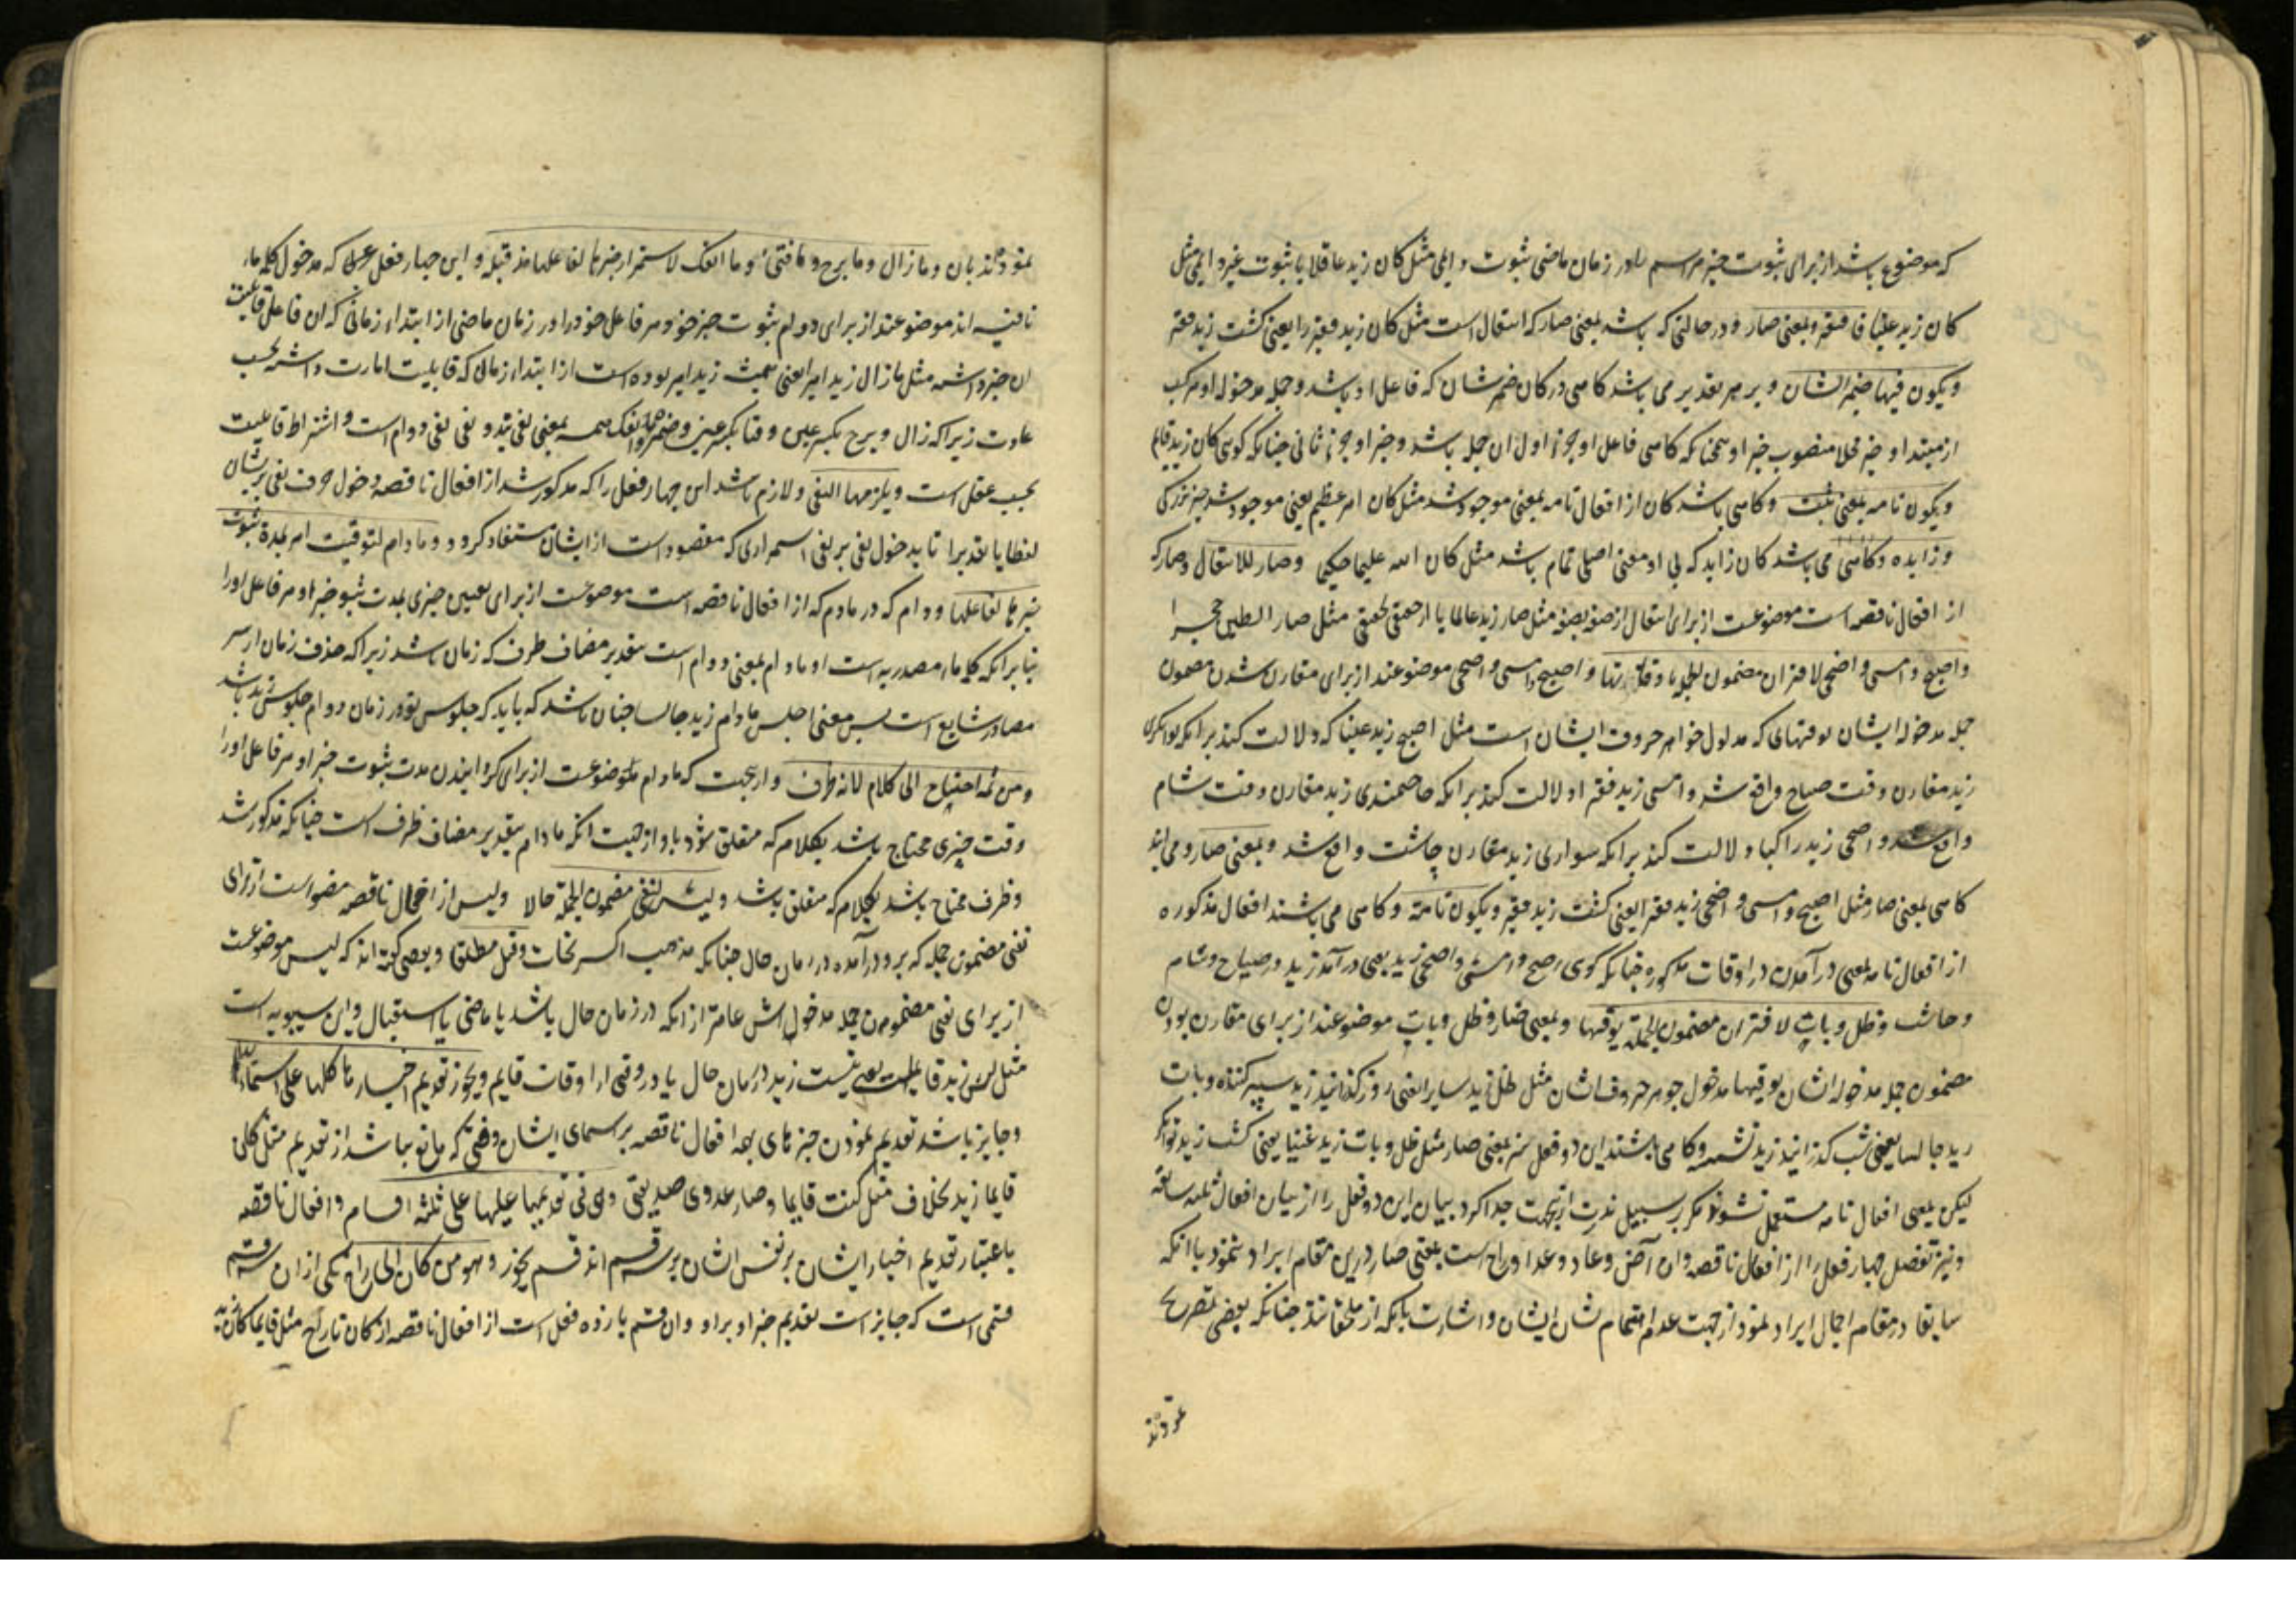 که موضوع باشد از برای ثبوت خبر مر اسم را در زمان ماضی ثبوت دایمی مثل کان زید عاقلا یا ثبوت غیر دایمی مثل
کان زید غنیا فافتقر وبمعنی صار و در حالتی که باشد بمعنی صار که انتقال است مثل کان زید فقیرا یعنی کشت زید فقیر
ویکون فیها ضمیر الشان و بر هر تقدیر می باشد کاهی در کان ضمیر شان که فاعل او باشد و جمله مدخوله او مرکب
از مبتدا و خبر محلا منصوب خبر او همچنانکه کاهی فاعل او جزء اول آن جمله باشد و خبر او جزء ثانی چنانکه کوئی کان زید قایم
ویکون تامه بمعنی ثبت وکاهی باشد کان از افعال تامه بمعنی موجود شد مثل کان امر عظیم یعنی موجود شد چیز بزرکی
وزایده وکاهی می باشد کان زاید که بی او معنی اصلی تمام باشد مثل کان الله علیما حکیما وصار للانتقال وصار که
از افعال ناقصه است موضوعست از برای انتقال از صفة بصفة مثل صار زید عالما یا از حقیقتی بحقیقتی مثل صار الطین حجرا
واصبح وامسی واضحی لاقتران مضمون الجملة باوقاتها واصبح وامسی واضحی موضوعند از برای مقارن شدن مضمون
جمله مدخوله ایشان بوقتهای که مدلول جواهر حروف ایشان است مثل اصبح زید غنیا که دلالت کند بر انکه توانکری
زید مقارن وقت صباح واقع شد وامسی زید فقیرا دلالت کند بر انکه حاجتمندی زید مقارن وقت شام
واقع شد واضحی زید راکبا دلالت کند بر انکه سواری زید مقارن چاشت واقع شد وبمعنی صار ومی ایند
کاهی بمعنی صار مثل اصبح وامسی واضحی زید فقیرا یعنی کشت زید فقیر ویکون تامة وکاهی می باشند افعال مذکوره
از افعال تامه بمعنی درآمدن در اوقات مذکوره چنانکه کوی اصبح وامسی واضحی زید یعنی درآمد زید در صباح وشام
وچاشت وظل وبات لاقتران مضمون الجملة بوقتیهما وبمعنی صار وظل وبات موضوعند از برای مقارن بودن
مضمون جمله مدخوله اشان بوقتیها مدخول جوهر حروف اشان مثل ظل زید سایرا یعنی روز کذرانید زید سیر کننده وبات
زید جالسا یعنی شب کذرانید زید نشسته وکاهی باشند این دو فعل نیز بمعنی صار مثل ظل وبات زید غنیا یعنی کشت زید توانکر
لیکن بمعنی افعال تامه مستعمل نشوند مکر بر سبیل ندرت ازینجهت جدا کرد بیان این دو فعل را از بیان افعال ثلثه سابقه
ونیز تفصیل چهار فعل را از افعال ناقصه وان آض وعاد وغدا وراح است بمعنی صار درین مقام ایراد ننمود با انکه
سابقا در مقام اجمال ایراد نمود از جهت عدم اهتمام بشان ایشان واشارت بانکه از ملحقاتند چنانکه بعضی تصریح
نموده‌اند بان وما زال وما برح وما فتئ وما انفک لاستمرار خبرها لفاعلها مذ قبله و این چهار فعل که مدخول کلمه ماء
نافیه اند موضوعند از برای دوام ثبوت خبر خود مر فاعل خود را در زمان ماضی از ابتداء زمانی که ان فاعل قابلیت
ان خبر داشته مثل ما زال زید امیرا یعنی همیشه زید امیر بوده است از ابتداء زمانی که قابلیت امارت داشته بحسب
عادت زیرا که زال وبرح بکسر عین وفتأ بکسر عین وانفک همه بمعنی نفی‌اند ونفی نفی دوام است واشتراط قابلیت
بحسب عقل است ویلزمها النفی ولازم باشد این چهار فعل را که مذکور شد از افعال ناقصه دخول حرف نفی بر ایشان
لفظا یا تقدیرا تا بدخول نفی بر نفی استمراری که مقصود است از ایشان مستفاد کردد وما دام لتوقیت امر بمدة ثبوت
خبرها لفاعلها ودام که در مادام که از افعال ناقصه است موضوعست از برای تعیین چیزی بمدت ثبوت خبر او مر فاعل او را
بنا بر انکه کلمه ماء مصدریه است او مادام بمعنی دوام است بتقدیر مضاف ظرف که زمان باشد زیرا که حذف زمان از سر
مصادر شایع است پس معنی اجلس مادام زید جالسا چنان باشد که باید که جلوس تو در زمان دوام جلوس زید باشد
ومن ثم احتاج الی کلام لانه ظرف وازینجهت که مادام موضوعست از برای کردانیدن مدت ثبوت خبر او مر فاعل او را
وقت چیزی محتاج باشد بکلام که متعلق شود باو از جهت انکه مادام بتقدیر مضاف ظرف است چنانکه مذکور شد
وظرف محتاج باشد بکلام که متعلق باشد ولیس لنفی مضمون الجملة حالا ولیس از افعال ناقصه موضوع است از برای
نفی مضمون جمله که برو درآمده در زمان حال چنانکه مذهب اکثر نحات وقیل مطلقا وبعضی کفته اند که لیس موضوعست
از برای نفی مضمون جمله مدخول اش عامتر از انکه در زمان حال باشد یا ماضی یا استقبال واین سیبویه است
مثل لیس زید قایما یعنی نیست زید در زمان حال یا در وقتی از اوقات قایم ویجوز تقدیم اخبارها کلها علی اسمائها
وجایز باشد تقدیم نمودن خبرهای همه افعال ناقصه بر اسمای ایشان وقتی که مانع نباشد از تقدیم مثل کان
قایما زید بخلاف مثل کنت قایما وصار عدوی صدیقی وهی فی تقدیمها علیها علی ثلثة اقسام وافعال ناقصه
باعتبار تقدیم اخبار ایشان بر نفس اشان بر سه قسم اند قسم یجوز وهو من کان الی راح یکی از ان سه قسم
قسمی است که جایز است تقدیم خبر او بر او وان قسم یازده فعل است از افعال ناقصه از کان تا راح مثل قایما کان زید